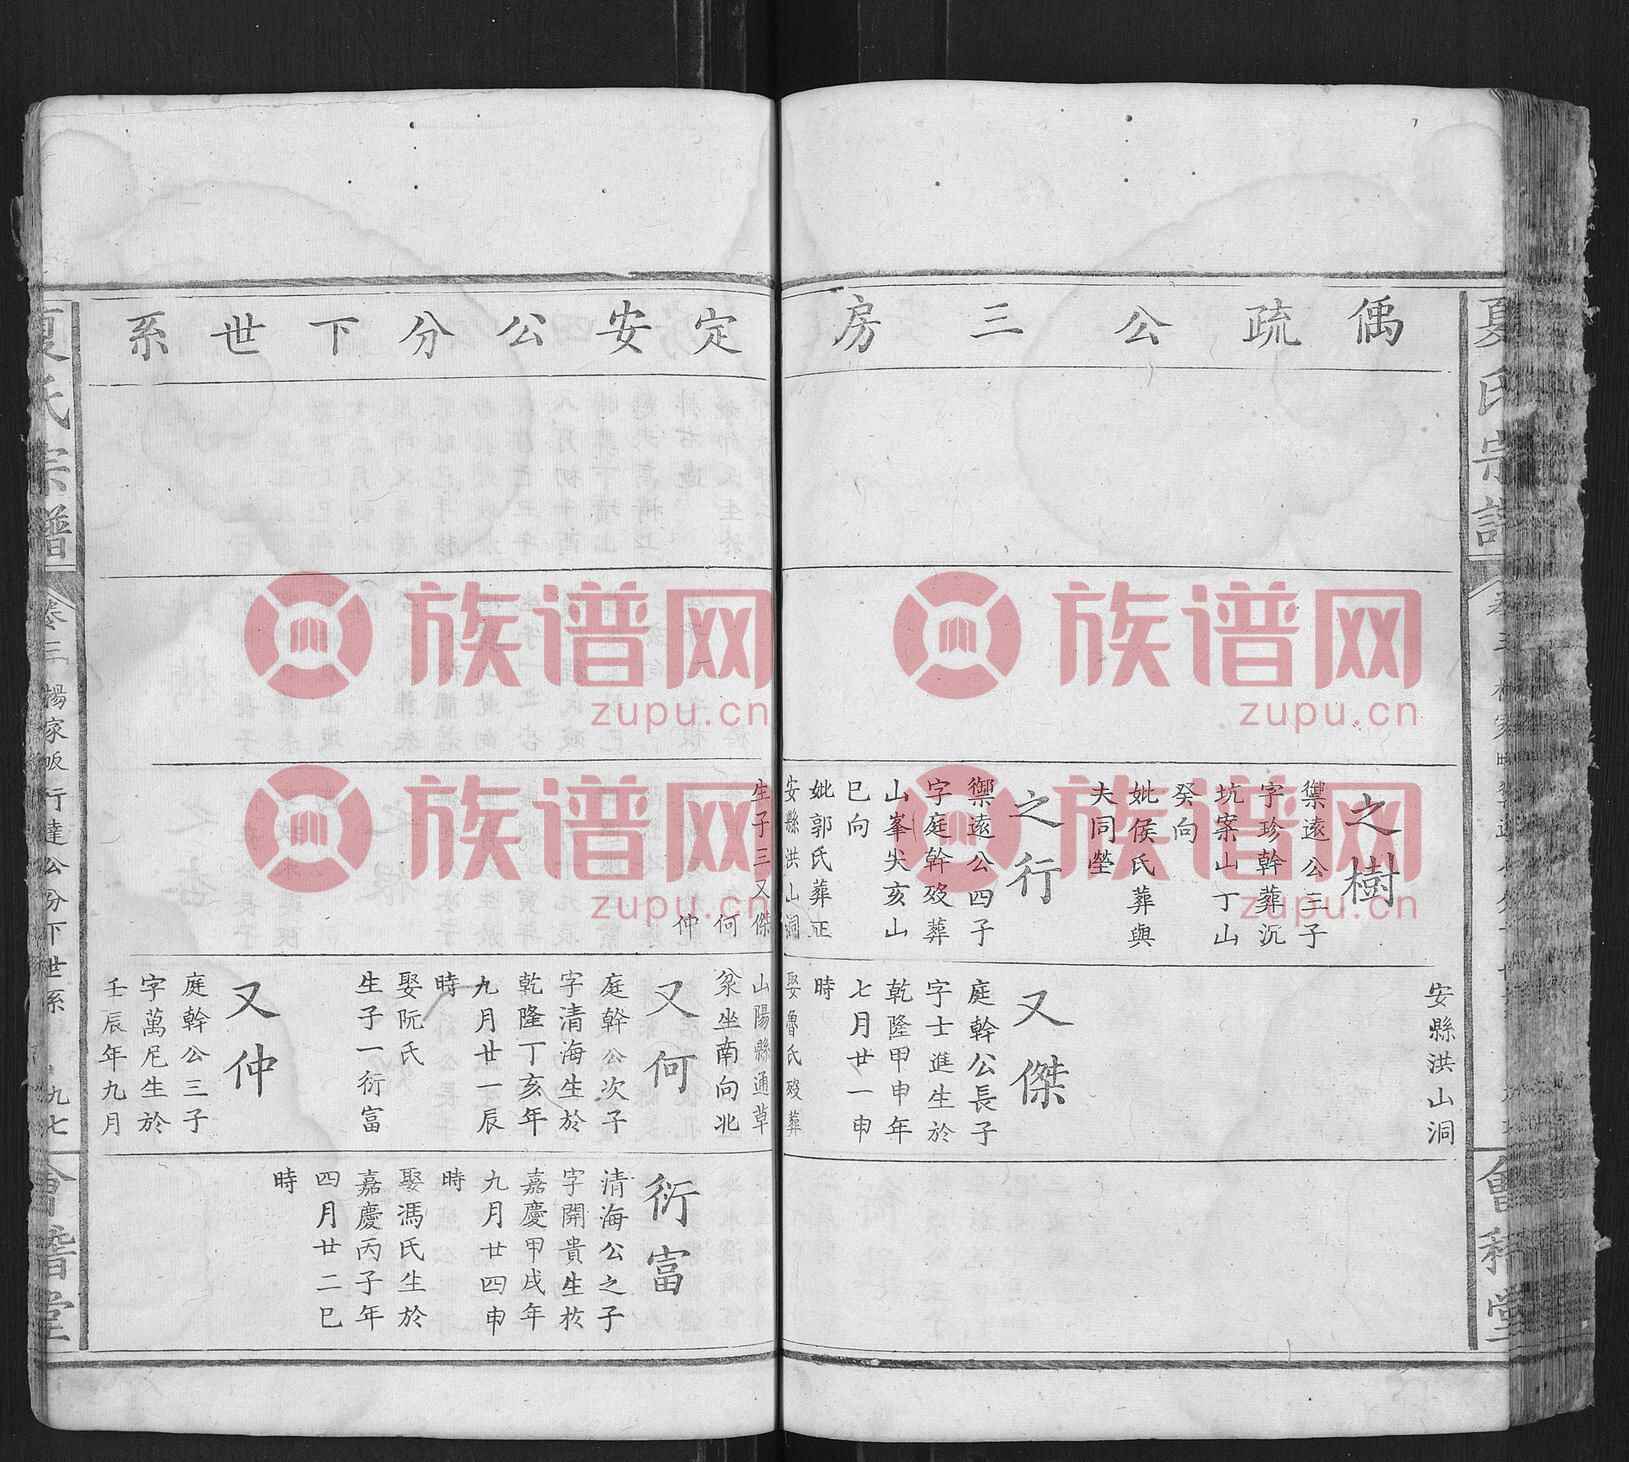 夏氏宗譜
會稽堂
偊疏公三房
定安公分下世系
之樹
禦遠公三子
字珍幹葬沉
坑案山丁山
癸向
妣侯氏葬與
夫同塋
之行
禦遠公四子
字庭幹歿葬
山峯尖亥山
巳向
妣郭氏葬正
安縣洪山洞
生子三又傑
何
仲
安縣洪山洞
又傑
庭幹公長子
字士進生於
乾隆甲申年
七月廿一申
時
娶魯氏歿葬
山陽縣通草
坌坐南向北
又何
庭幹公次子
字清海生於
乾隆丁亥年
九月廿一辰
時
娶阮氏
生子一衍富
又仲
庭幹公三子
字萬尼生於
壬辰年九月
衍富
清海公之子
字開貴生於
嘉慶甲戌年
九月廿四申
時
娶馮氏生於
嘉慶丙子年
四月廿二巳
時
夏氏宗譜
卷三楊家畈行達公分下世系
九七
會稽堂
族谱网
zupu.cn
族谱网
zupu.cn
族谱网
zupu.cn
族谱网
zupu.cn